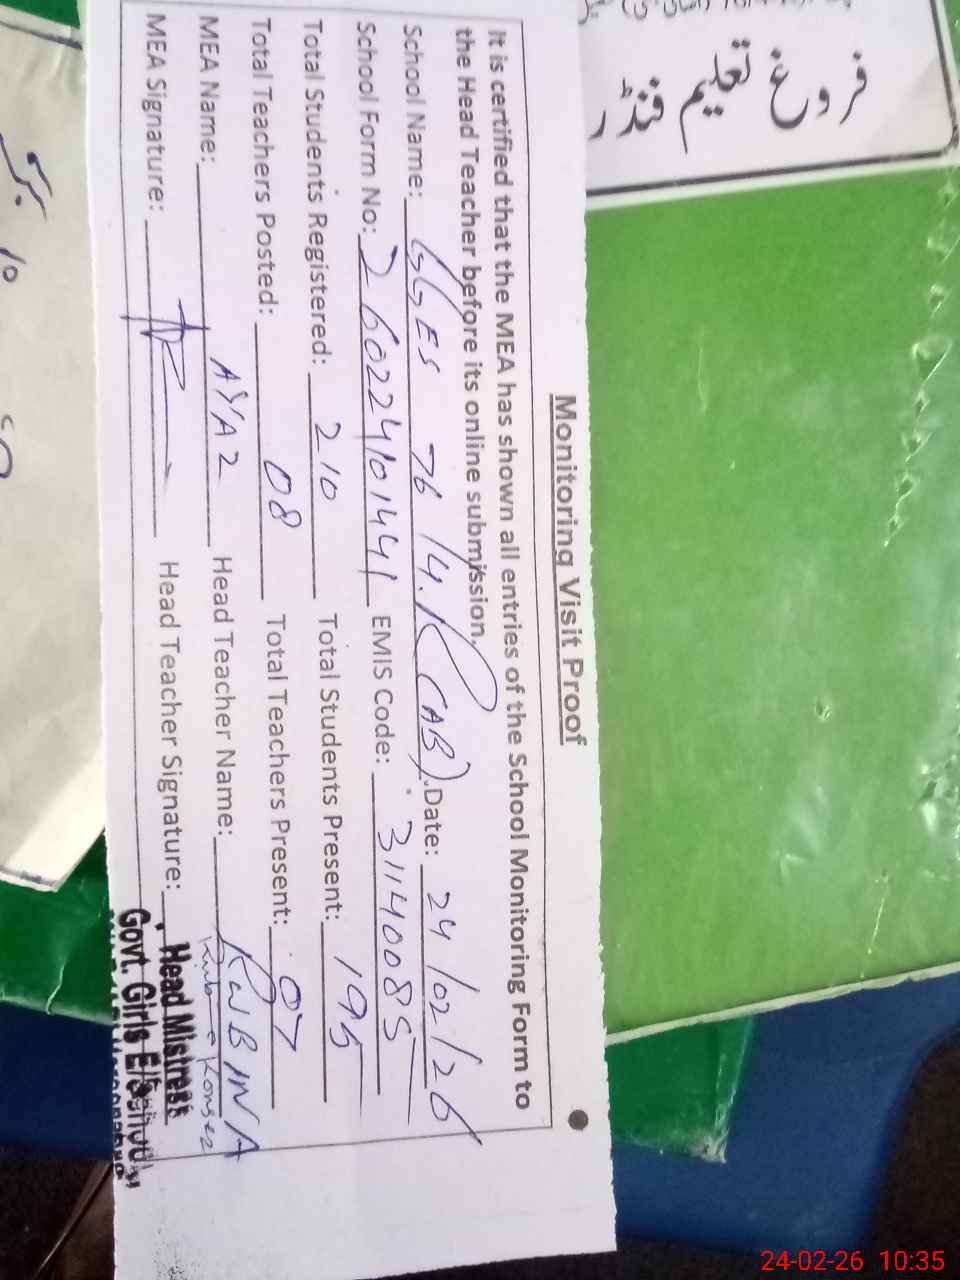 فروغ تعلیم فنڈ
Monitoring Visit Proof
It is certified that the MEA has shown all entries of the School Monitoring Form to
the Head Teacher before its online submission.
School Name: GGES 76 14.R (AB). Date: 24/02/26
School Form No: 260224101441 EMIS Code: 31140085
Total Students Registered: 210 Total Students Present: 195
Total Teachers Posted: 08 Total Teachers Present: 07
MEA Name: AYAZ Head Teacher Name: RUBINA
MEA Signature: Head Teacher Signature:
Head Mistress
Govt. Girls E/School
24-02-26 10:35